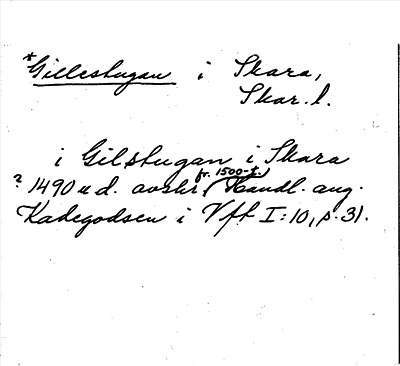 *Gillestugan i Skara,
Skar.l.
i Gilstugan i Skara
fr. 1500-t.
? 1490 u.d. avskr. (Handl. ang.
Kadegodsen i Vft I:10, s. 31.